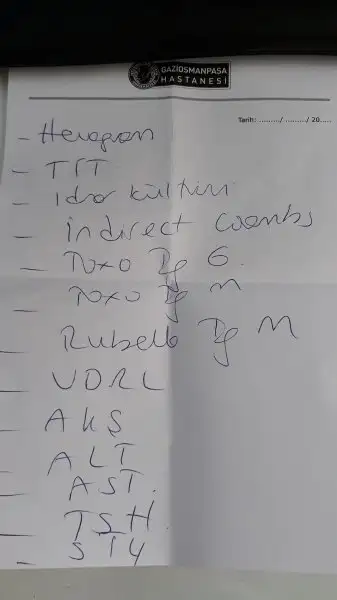 GAZİOSMANPAŞA
HASTANESİ
Tarih: ........../ ........../ 20.....
- Hemogram
- TİT
- İdrar kültürü
- indirect Coombs
- Toxo Ig G.
- Toxo Ig M
- Rubella Ig M
- VDRL
- AKŞ
- ALT
- AST.
- TSH.
- sT4